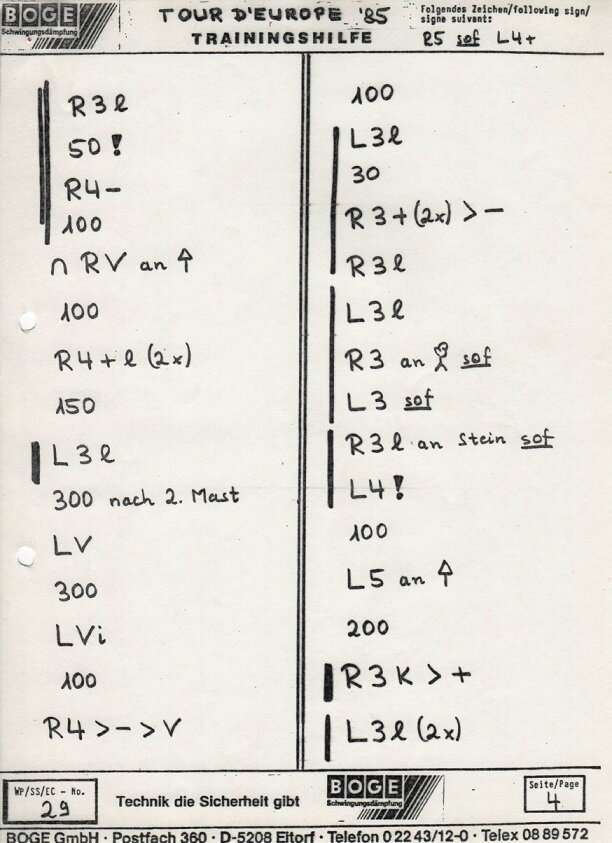 BOGE
Schwingungsdämpfung
TOUR D'EUROPE '85
TRAININGSHILFE
Folgendes Zeichen/following sign/
signe suivant:
R5 sof L4+
R3l
50!
R4-
100
∩ RV an ↑
100
R4+l (2x)
150
L3l
300 nach 2. Mast
LV
300
LVi
100
R4>->V
100
L3l
30
R3+(2x)>-
R3l
L3l
R3 an sof
L3 sof
R3l an Stein sof
L4!
100
L5 an ↑
200
R3K>+
L3l (2x)
WP/SS/EC - No.
29
Technik die Sicherheit gibt
BOGE
Schwingungsdämpfung
Seite/Page
4
BOGE GmbH · Postfach 360 · D-5208 Eitorf · Telefon 0 22 43/12-0 · Telex 08 89 572